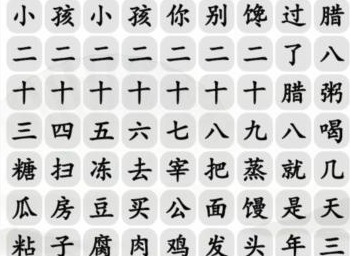 小孩小孩你别馋过腊
二二二二二二二了八
十十十十十十十腊粥
三四五六七八九八喝
糖扫冻去宰把蒸就几
瓜房豆买公面馒是天
粘子腐肉鸡发头年三